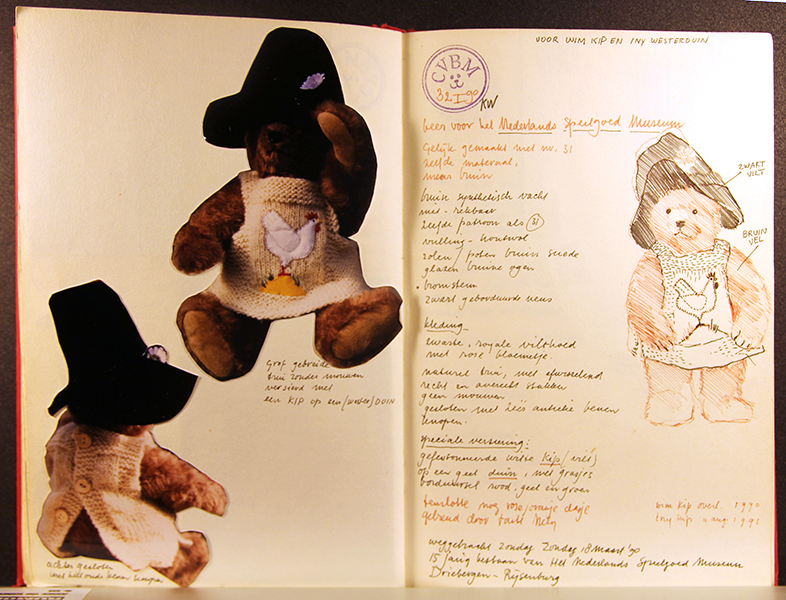 Grof gebreide
trui zonder mouwen
versierd met
een KIP op een (wester) DUIN
achter gesloten
met heel oude
VOOR WIM KIP EN INY WESTERDUIN
CVBM
32 I 90
KW
beer voor het Nederlands Speelgoed Museum
Gelijk gemaakt met nr. 31
zelfde materiaal,
meer bruin
bruin synthetisch vacht
niet-rekbaar
zelfde patroon als 31
vulling - houtwol
zolen/poten bruin suede
glazen bruine ogen
bromstem
zwart geborduurde neus
kleding -
zwarte, royale vilthoed
met rose bloemetje.
naturel trui, met afwisselend
recht en averecht stukken
geen mouwen
gesloten met zes antieke benen
knopen.
speciale versiering:
gefestonneerde witte kip (vilt)
op een geel duin, met grasjes
borduursel rood, geel en groen
tenslotte nog rose/oranje dasje
gebreid door tante Nely
weggebracht Zondag Zondag 18 maart '90
15 jarig bestaan van Het Nederlands Speelgoed Museum
Driebergen - Rijsenburg
ZWART
VILT
BRUIN
VEL
wim kip overl. 1990
iny kip 1991